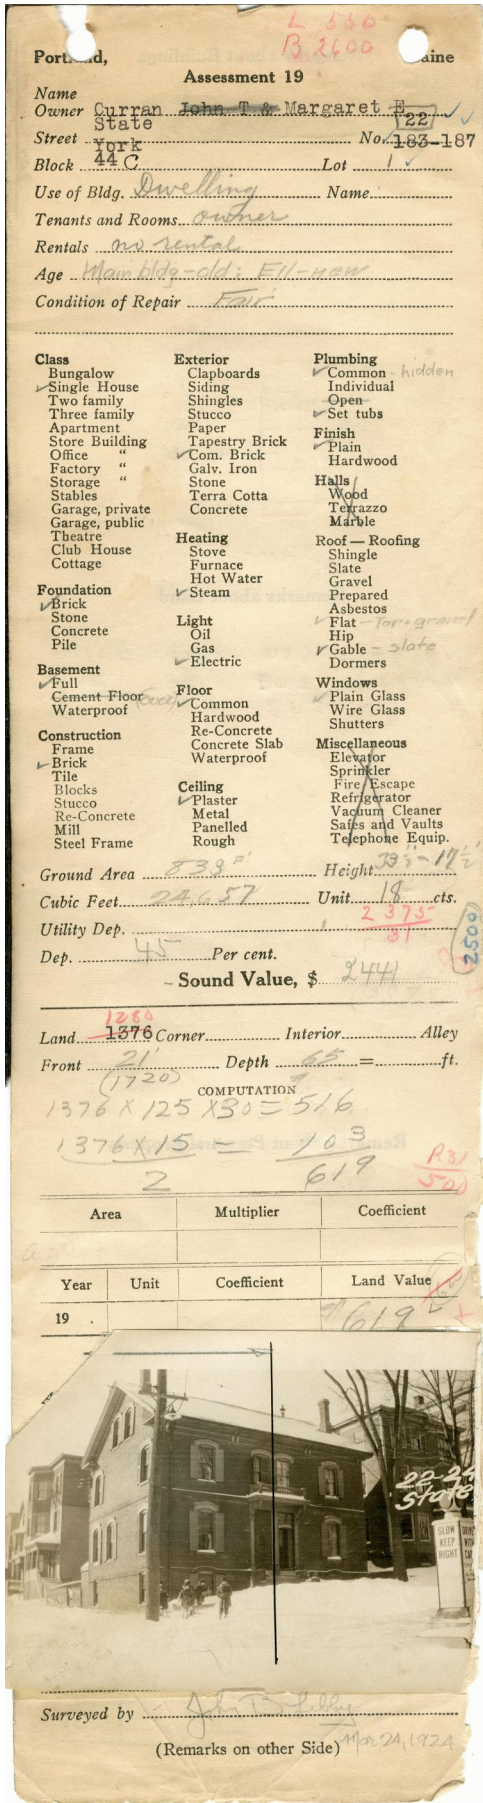 L 550
B 2600
Portland, Maine
Assessment 19
Name
Owner Curran John T & Margaret E
State 22
Street York No. 183-187
Block 44 C Lot 1
Use of Bldg. Dwelling Name
Tenants and Rooms owner
Rentals no rental
Age Main bldg-old: Ell-new
Condition of Repair Fair
Class
Bungalow
Single House
Two family
Three family
Apartment
Store Building
Office "
Factory "
Storage "
Stables
Garage, private
Garage, public
Theatre
Club House
Cottage
Foundation
Brick
Stone
Concrete
Pile
Basement
Full
Cement Floor
Waterproof
Construction
Frame
Brick
Tile
Blocks
Stucco
Re-Concrete
Mill
Steel Frame
Exterior
Clapboards
Siding
Shingles
Stucco
Paper
Tapestry Brick
Com. Brick
Galv. Iron
Stone
Terra Cotta
Concrete
Heating
Stove
Furnace
Hot Water
Steam
Light
Oil
Gas
Electric
Floor
Common
Hardwood
Re-Concrete
Concrete Slab
Waterproof
Ceiling
Plaster
Metal
Panelled
Rough
Plumbing
Common - hidden
Individual
Open
Set tubs
Finish
Plain
Hardwood
Halls
Wood
Terrazzo
Marble
Roof — Roofing
Shingle
Slate
Gravel
Prepared
Asbestos
Flat - Tar + gravel
Hip
Gable - slate
Dormers
Windows
Plain Glass
Wire Glass
Shutters
Miscellaneous
Elevator
Sprinkler
Fire Escape
Refrigerator
Vacuum Cleaner
Safes and Vaults
Telephone Equip.
Ground Area 839 Height 33½ - 17½
Cubic Feet 24,657 Unit 18 cts.
2375
31
Utility Dep.
2500
Dep. 45 Per cent.
Sound Value, $ 2441
1280
Land 1376 Corner Interior Alley
Front 21' Depth 65 = ft.
(1720)
COMPUTATION
1376 X 125 X 30 = 516
1376 X 15 = 103
2 619
R31
500
Area Multiplier Coefficient
Year Unit Coefficient Land Value
19 . 619
22-24
State
SLOW
KEEP
RIGHT
DRIVE
WITH
Surveyed by
Mar 24, 1924
(Remarks on other Side)